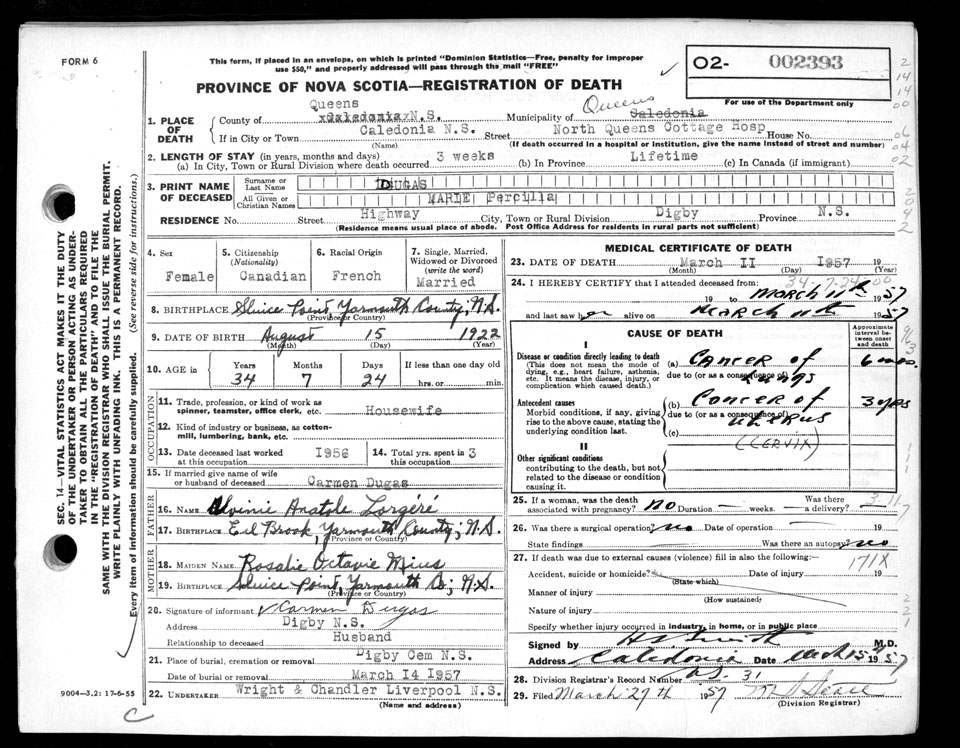 FORM 6
This form, if placed in an envelope, on which is printed "Dominion Statistics—Free, penalty for improper
use $50," and properly addressed will pass through the mail "FREE"
O2- 002393
For use of the Dominion Bureau of Statistics
PROVINCE OF NOVA SCOTIA—REGISTRATION OF DEATH
1. PLACE OF DEATH
Queens
County of Caledonia N.S. Municipality of Queens Caledonia
If in City or Town Caledonia N.S. Street North Queens Cottage Hosp House No.
(Name) (If death occurred in a hospital or institution, give the name instead of street and number)
2. LENGTH OF STAY (in years, months and days)
(a) In City, Town or Rural Division where death occurred 3 weeks (b) In Province Lifetime (c) In Canada (if immigrant)
3. PRINT NAME OF DECEASED
Surname or Last Name DUGAS
All Given or Christian Names MARIE Percilla
RESIDENCE No. Street Highway City, Town or Rural Division Digby Province N.S.
(Residence means usual place of abode. Post Office Address for residents in rural parts not sufficient)
4. Sex Female
5. Citizenship (Nationality) Canadian
6. Racial Origin French
7. Single, Married, Widowed or Divorced (write the word) Married
8. BIRTHPLACE Sluice Point, Yarmouth County, N.S.
(Province or Country)
9. DATE OF BIRTH August 15 1922
(Month) (Day) (Year)
10. AGE in Years Months Days If less than one day old
34 7 24 hrs. or min.
OCCUPATION
11. Trade, profession, or kind of work as
spinner, teamster, office clerk, etc. Housewife
12. Kind of industry or business, as cotton-
mill, lumbering, bank, etc.
13. Date deceased last worked at this occupation 1956
14. Total yrs. spent in this occupation 3
15. If married give name of wife
or husband of deceased Carmen Dugas
FATHER
16. NAME Anatole
17. BIRTHPLACE Eel Brook, Yarmouth County, N.S.
(Province or Country)
MOTHER
18. MAIDEN NAME Rosalie Octavie Mius
19. BIRTHPLACE Sluice Point, Yarmouth Co; N.S.
(Province or Country)
20. Signature of informant Carmen Dugas
Address Digby N.S.
Relationship to deceased Husband
21. Place of burial, cremation or removal Digby Cem N.S.
Date of burial or removal March I4 I957
22. UNDERTAKER Wright & Chandler Liverpool N.S.
(Name and address)
MEDICAL CERTIFICATE OF DEATH
23. DATE OF DEATH March II I957 19
(Month) (Day) (Year)
34-7-24-00
24. I HEREBY CERTIFY that I attended deceased from:
19 to March 11th 1957
and last saw her alive on March 11th 1957
CAUSE OF DEATH
Approximate interval between onset and death
I
Disease or condition directly leading to death
(This does not mean the mode of dying, e.g., heart failure, asthenia, etc. It means the disease, injury, or complication which caused death.)
(a) Cancer of Lungs 6 mos.
due to (or as a consequence of)
Antecedent causes
Morbid conditions, if any, giving rise to the above cause, stating the underlying condition last.
(b) Cancer of Uterus 3 yrs
due to (or as a consequence of)
(c) (CERVIX)
II
Other significant conditions
contributing to the death, but not related to the disease or condition causing it.
25. If a woman, was the death
associated with pregnancy? no Duration — weeks. Was there a delivery? —
3-11
26. Was there a surgical operation? no Date of operation — 19
State findings Was there an autopsy? no
27. If death was due to external causes (violence) fill in also the following:—
171X
Accident, suicide or homicide? Date of injury 19
(State which)
Manner of injury
(How sustained)
Nature of injury
Specify whether injury occurred in industry, in home, or in public place
Signed by H Smith M.D.
Address Caledonia Date March 15 1957
28. Division Registrar's Record Number 31
29. Filed March 27th 1957
(Division Registrar)
SEC. 14—VITAL STATISTICS ACT MAKES IT THE DUTY
OF THE UNDERTAKER OR PERSON ACTING AS UNDER-
TAKER TO OBTAIN ALL THE PARTICULARS REQUIRED
IN THE "REGISTRATION OF DEATH" AND TO FILE THE
SAME WITH THE DIVISION REGISTRAR WHO SHALL ISSUE THE BURIAL PERMIT.
WRITE PLAINLY WITH UNFADING INK. THIS IS A PERMANENT RECORD.
Every item of information should be carefully supplied. (See reverse side for instructions.)
9004—3.2: 17-6-55
C